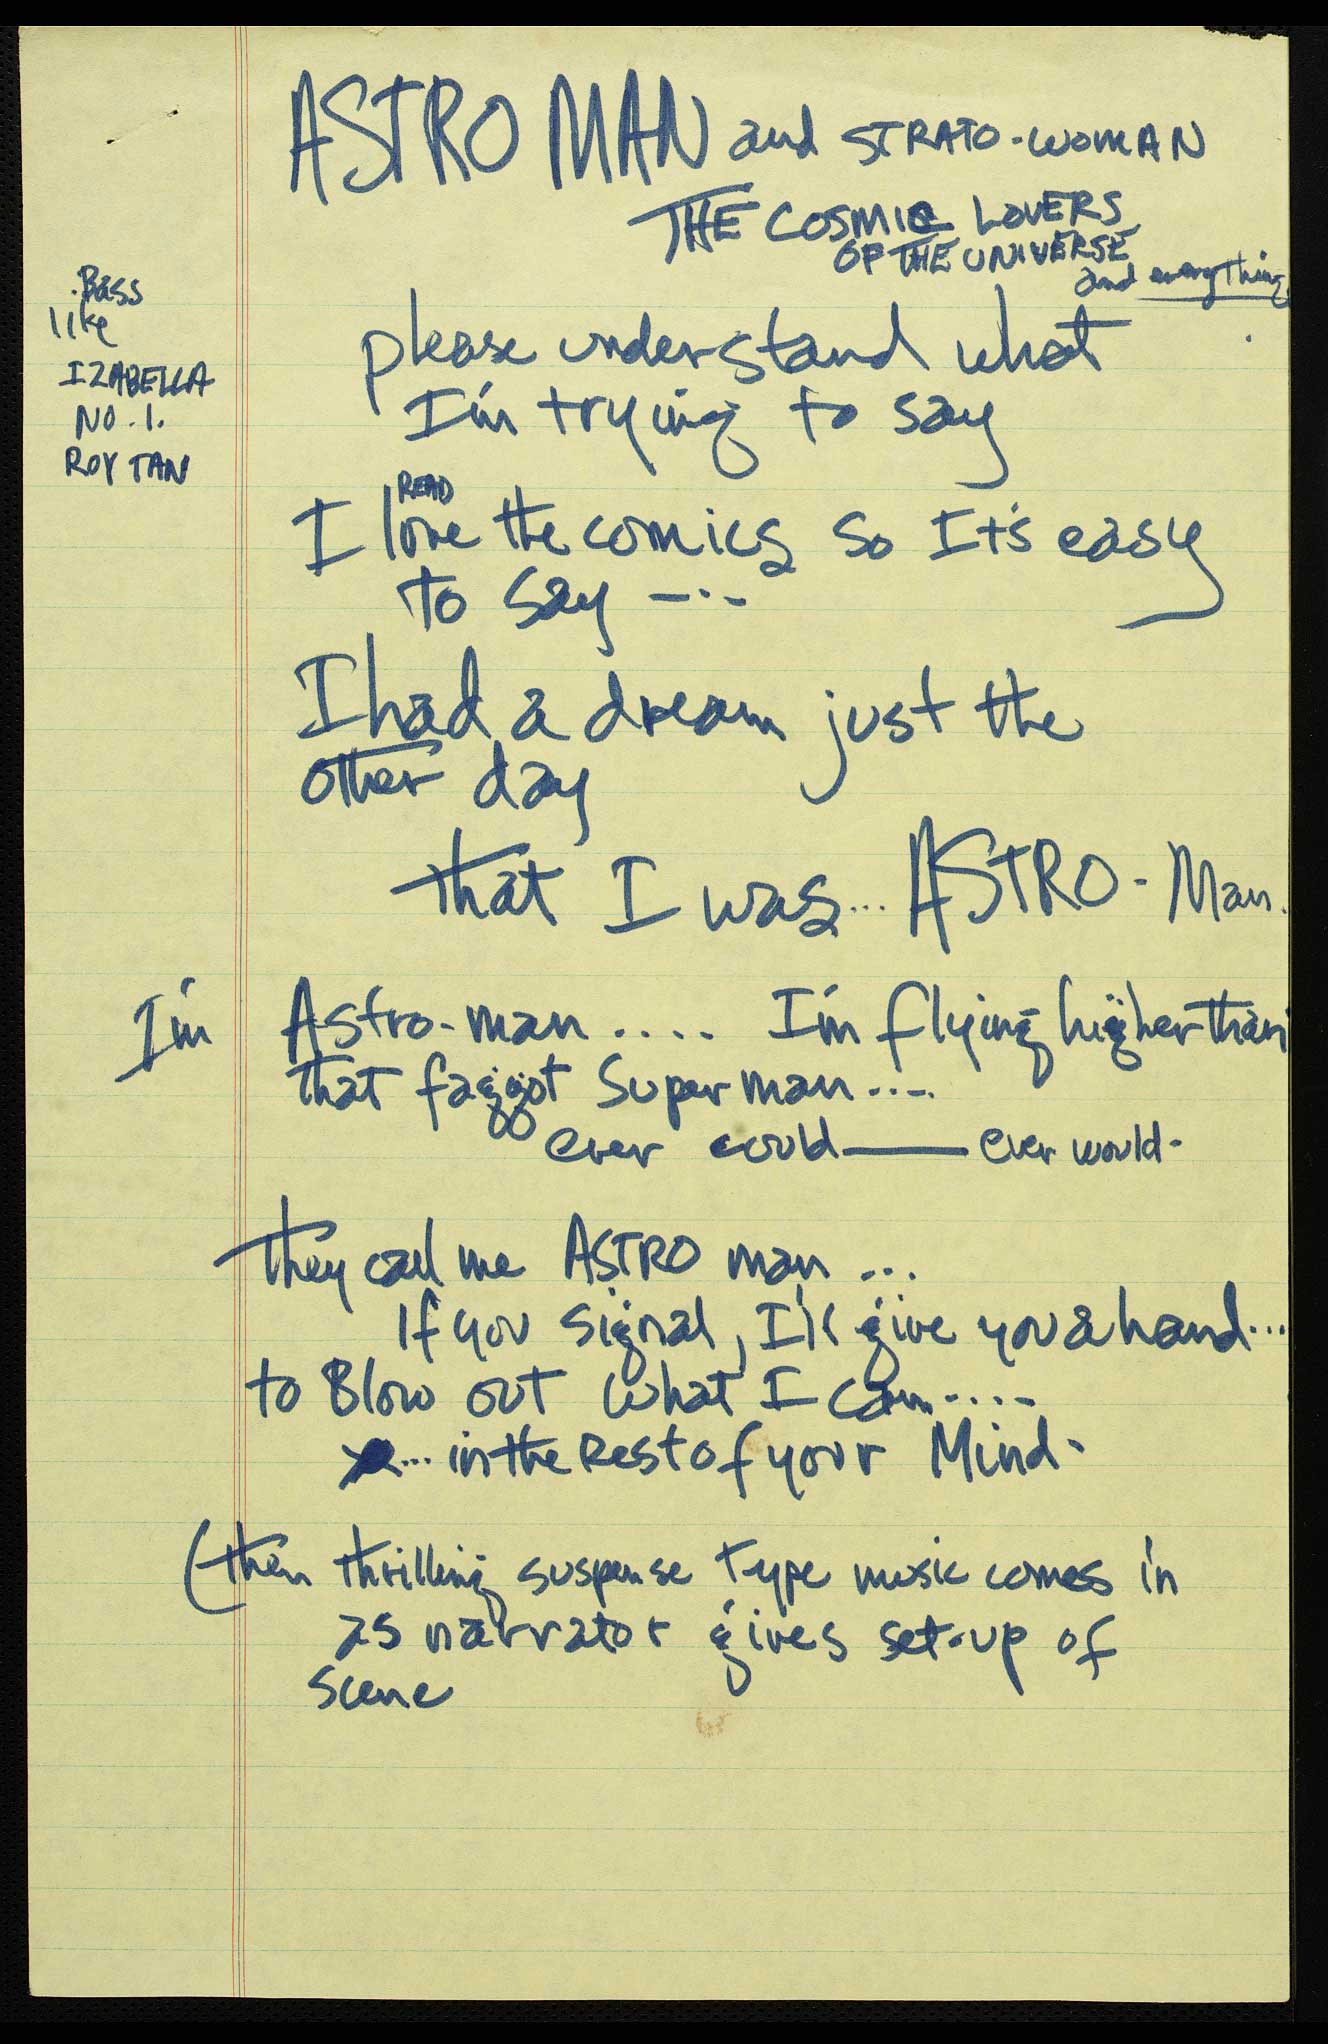 ASTRO MAN and STRATO-WOMAN
THE COSMIC LOVERS
OF THE UNIVERSE
and everything
.Bass
like
IZABELLA
NO. 1.
ROY TAN
please understand what
I'm trying to say
READ
I love the comics so It's easy
to say -·-
I had a dream just the
other day
that I was... ASTRO-Man.
I'm Astro-man .... I'm flying higher than
that faggot Super man ....
ever could —— ever would.
they call me ASTRO man ...
If you signal, I'll give you a hand...
to Blow out what I can....
... in the Rest of your Mind.
(then thrilling suspense type music comes in
as narrator gives set-up of
scene